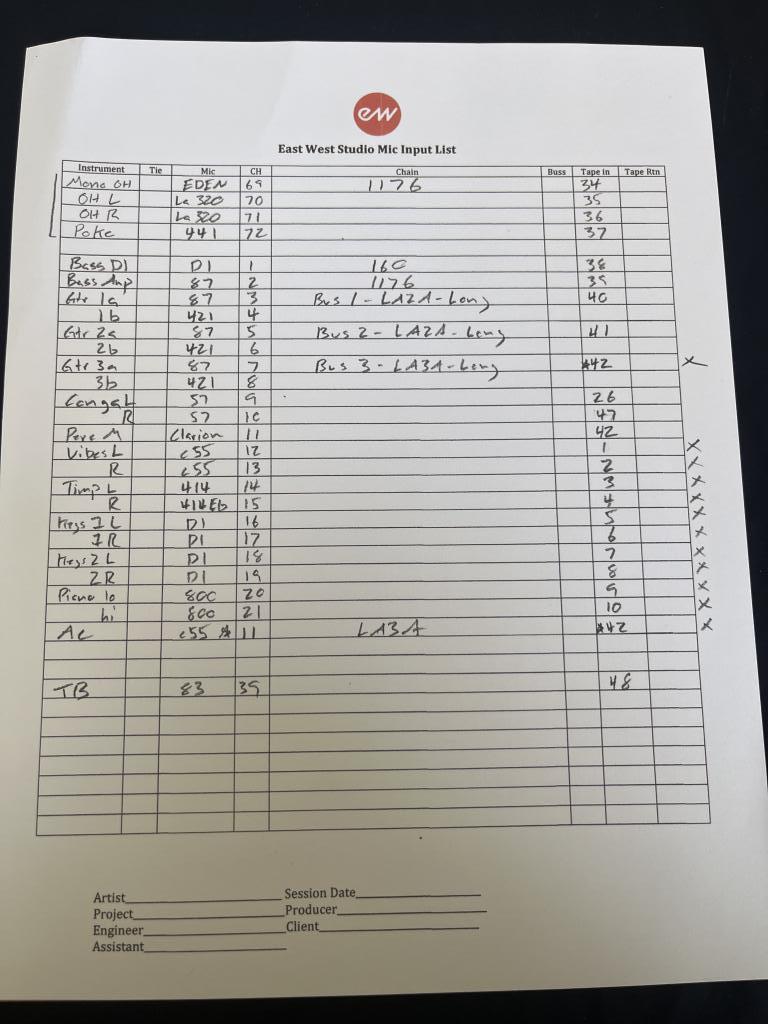 ew
East West Studio Mic Input List
Instrument Tie Mic CH Chain Buss Tape In Tape Rtn
Mono OH EDEN 69 1176 34
OH L La 320 70 35
OH R La 320 71 36
Poke 441 72 37
Bass DI DI 1 160 38
Bass Amp 87 2 1176 39
Gtr 1a 87 3 Bus 1 - LA2A - Long 40
1b 421 4
Gtr 2a 87 5 Bus 2 - LA2A - Long 41
2b 421 6
Gtr 3a 87 7 Bus 3 - LA3A - Long *42 x
3b 421 8
Conga L 57 9 26
R 57 10 47
Perc M Clarion 11 42
Vibes L c55 12 1 x
R c55 13 2 x
Timp L 414 14 3 x
R 414 Eb 15 4 x
Keys 1 L DI 16 5 x
1 R DI 17 6 x
Keys 2 L DI 18 7 x
2 R DI 19 8 x
Piano lo 800 20 9 x
hi 800 21 10 x
Ac c55 * 11 LA3A *42 x
TB 83 39 48
Artist Session Date
Project Producer
Engineer Client
Assistant